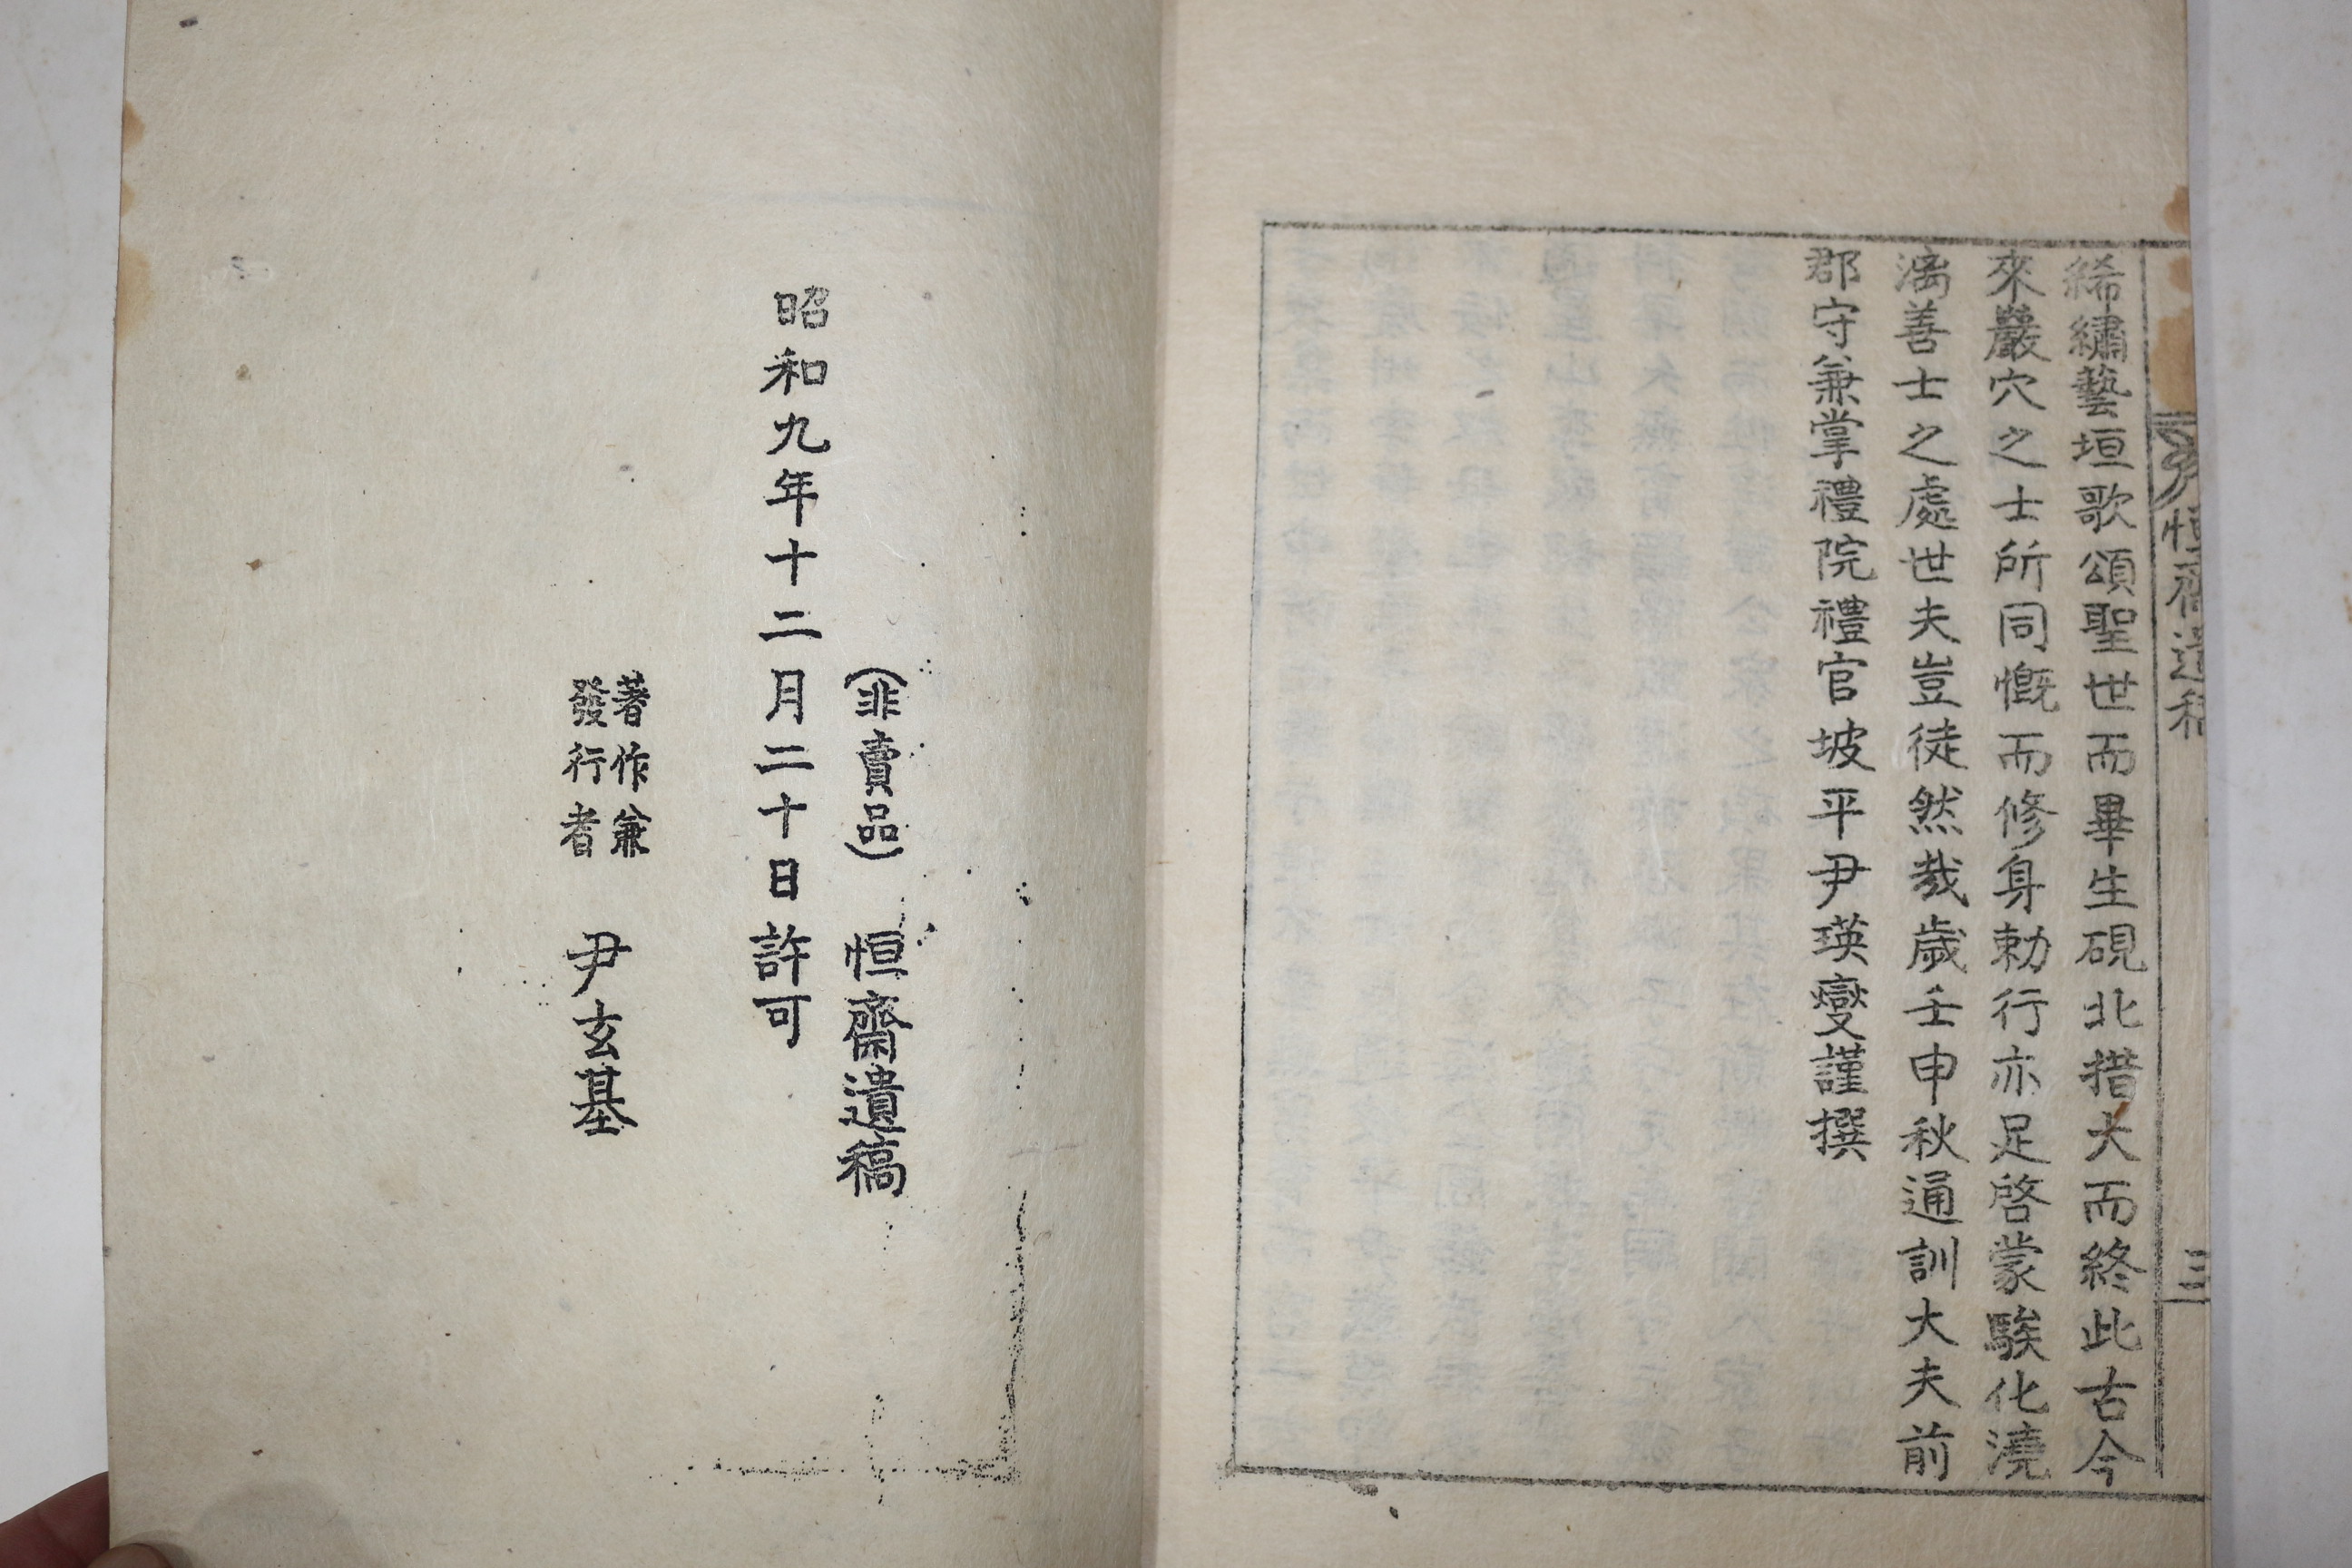 恒齋遺稿
三
絺繡藝垣歌頌聖世而畢生硯北措大而終此古今
來巖穴之士所同慨而修身勅行亦足啓蒙騃化澆
漓善士之處世夫豈徒然哉歲壬申秋通訓大夫前
郡守兼掌禮院禮官坡平尹瑛燮謹撰
(非賣品) 恒齋遺稿
昭和九年十二月二十日許可
著作兼
發行者 尹玄基